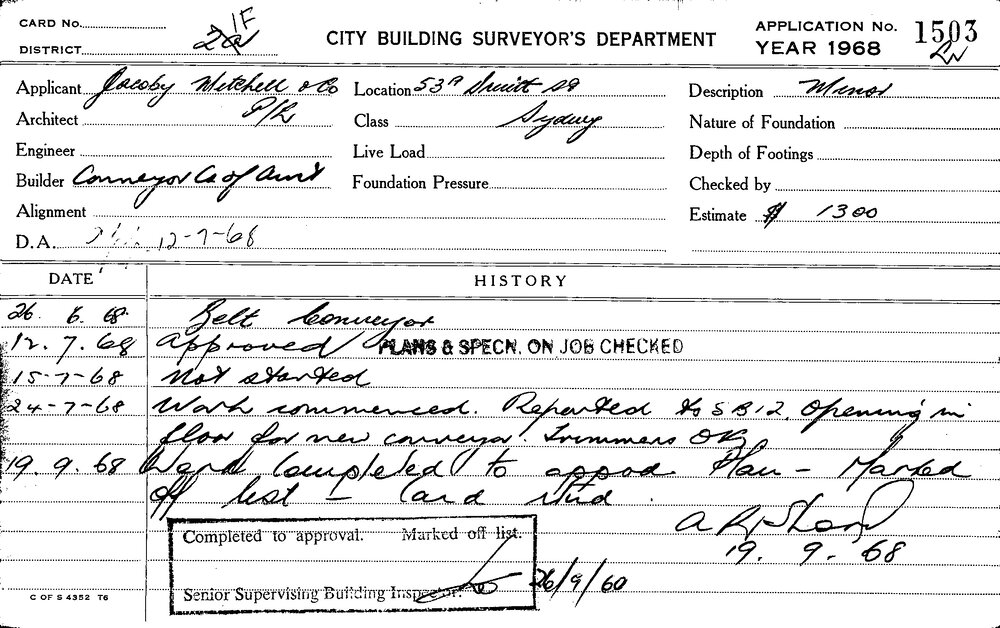 CARD No.
1F
DISTRICT 2a
CITY BUILDING SURVEYOR'S DEPARTMENT
APPLICATION No. 1503
YEAR 1968
Applicant Jacoby Mitchell & Co
P/L
Location 53A Druitt St
Description Minor
Architect
Class Sydney
Nature of Foundation
Engineer
Live Load
Depth of Footings
Builder Conveyor Co of Aust
Foundation Pressure
Checked by
Alignment
Estimate $ 1300
D.A. 12-7-68
DATE HISTORY
26. 6. 68. Belt Conveyor
12. 7. 68 Approved PLANS & SPECN. ON JOB CHECKED
15-7-68 Not started
24-7-68 Work commenced. Reported to SBI2. Opening in
floor for new conveyor. Trimmers OK
19. 9. 68 Work Completed to appod. Plan - Marked
off list - Card
19. 9. 68
Completed to approval. Marked off list.
Senior Supervising Building Inspector. 26/9/68
C OF S 4352 T6